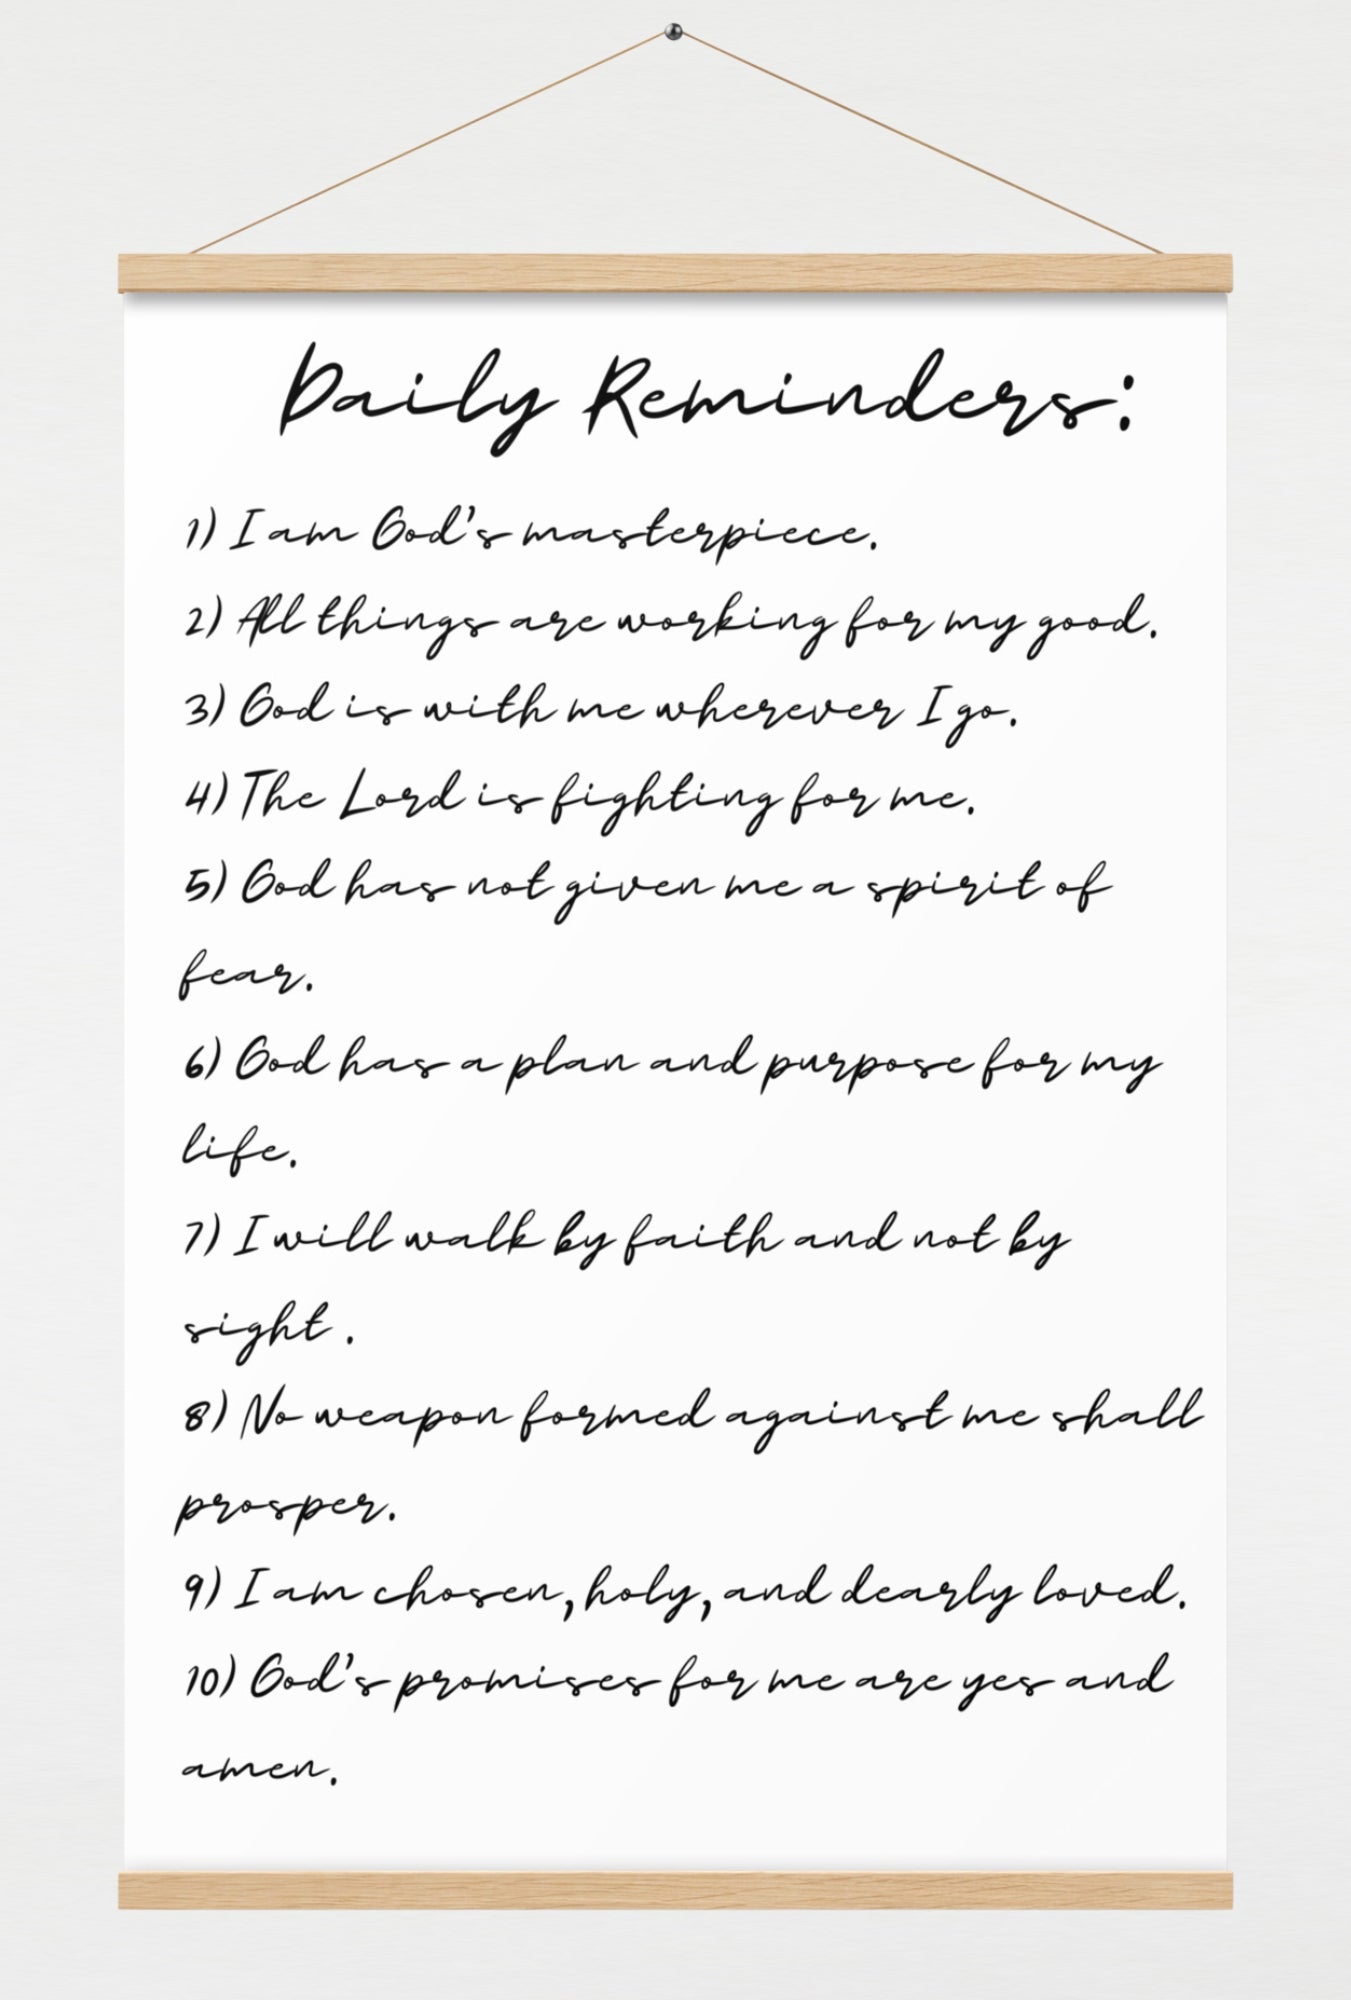 Daily Reminders:
1) I am God's masterpiece.
2) All things are working for my good.
3) God is with me wherever I go.
4) The Lord is fighting for me.
5) God has not given me a spirit of
fear.
6) God has a plan and purpose for my
life.
7) I will walk by faith and not by
sight .
8) No weapon formed against me shall
prosper.
9) I am chosen, holy, and dearly loved.
10) God's promises for me are yes and
amen.